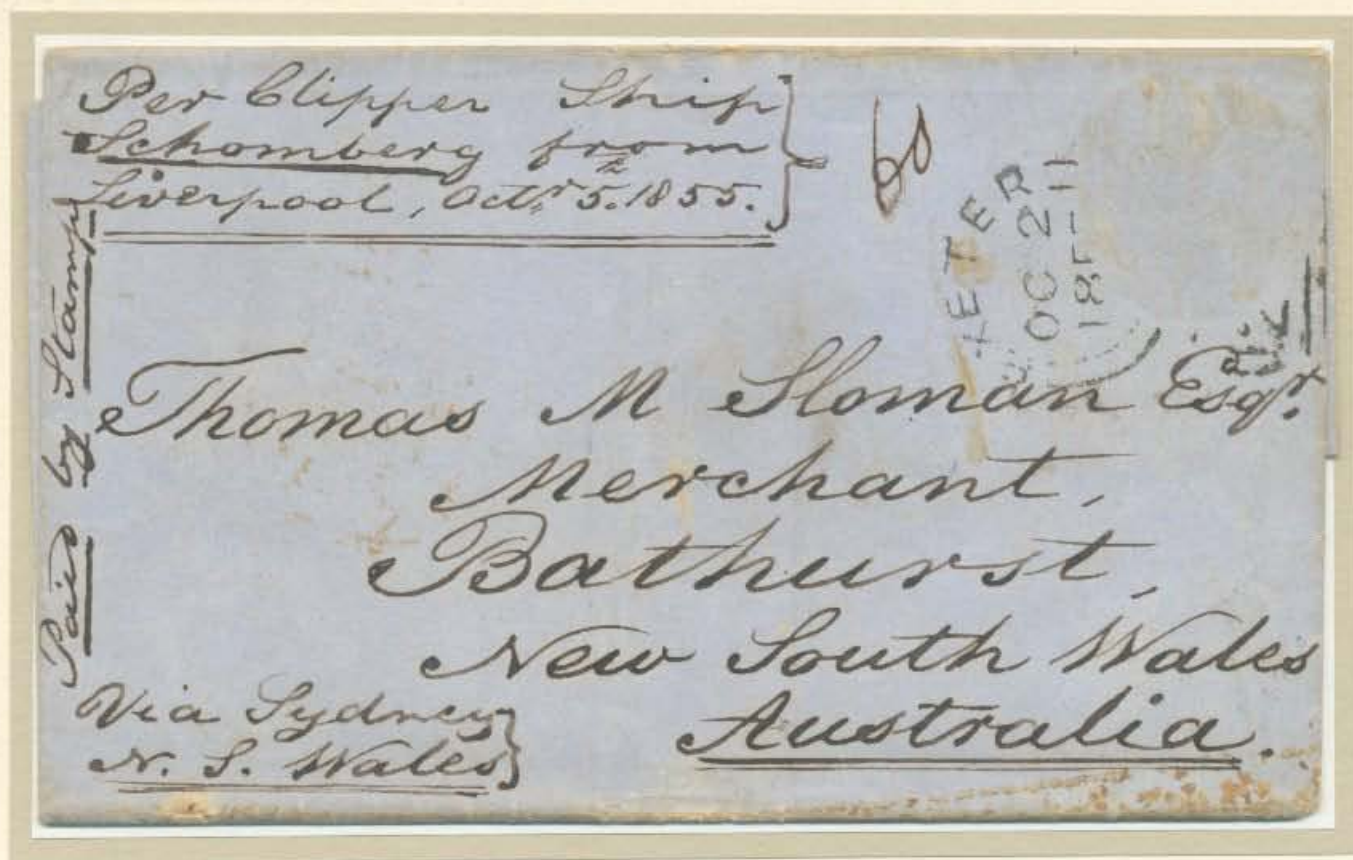 Per Clipper Ship
Schomberg from
Liverpool, Octr. 5. 1855.
6d
ETER
OC 2
185
Paid by Stamp
Thomas M Sloman Esqr.
Merchant,
Bathurst,
New South Wales
Australia.
Via Sydney
N. S. Wales